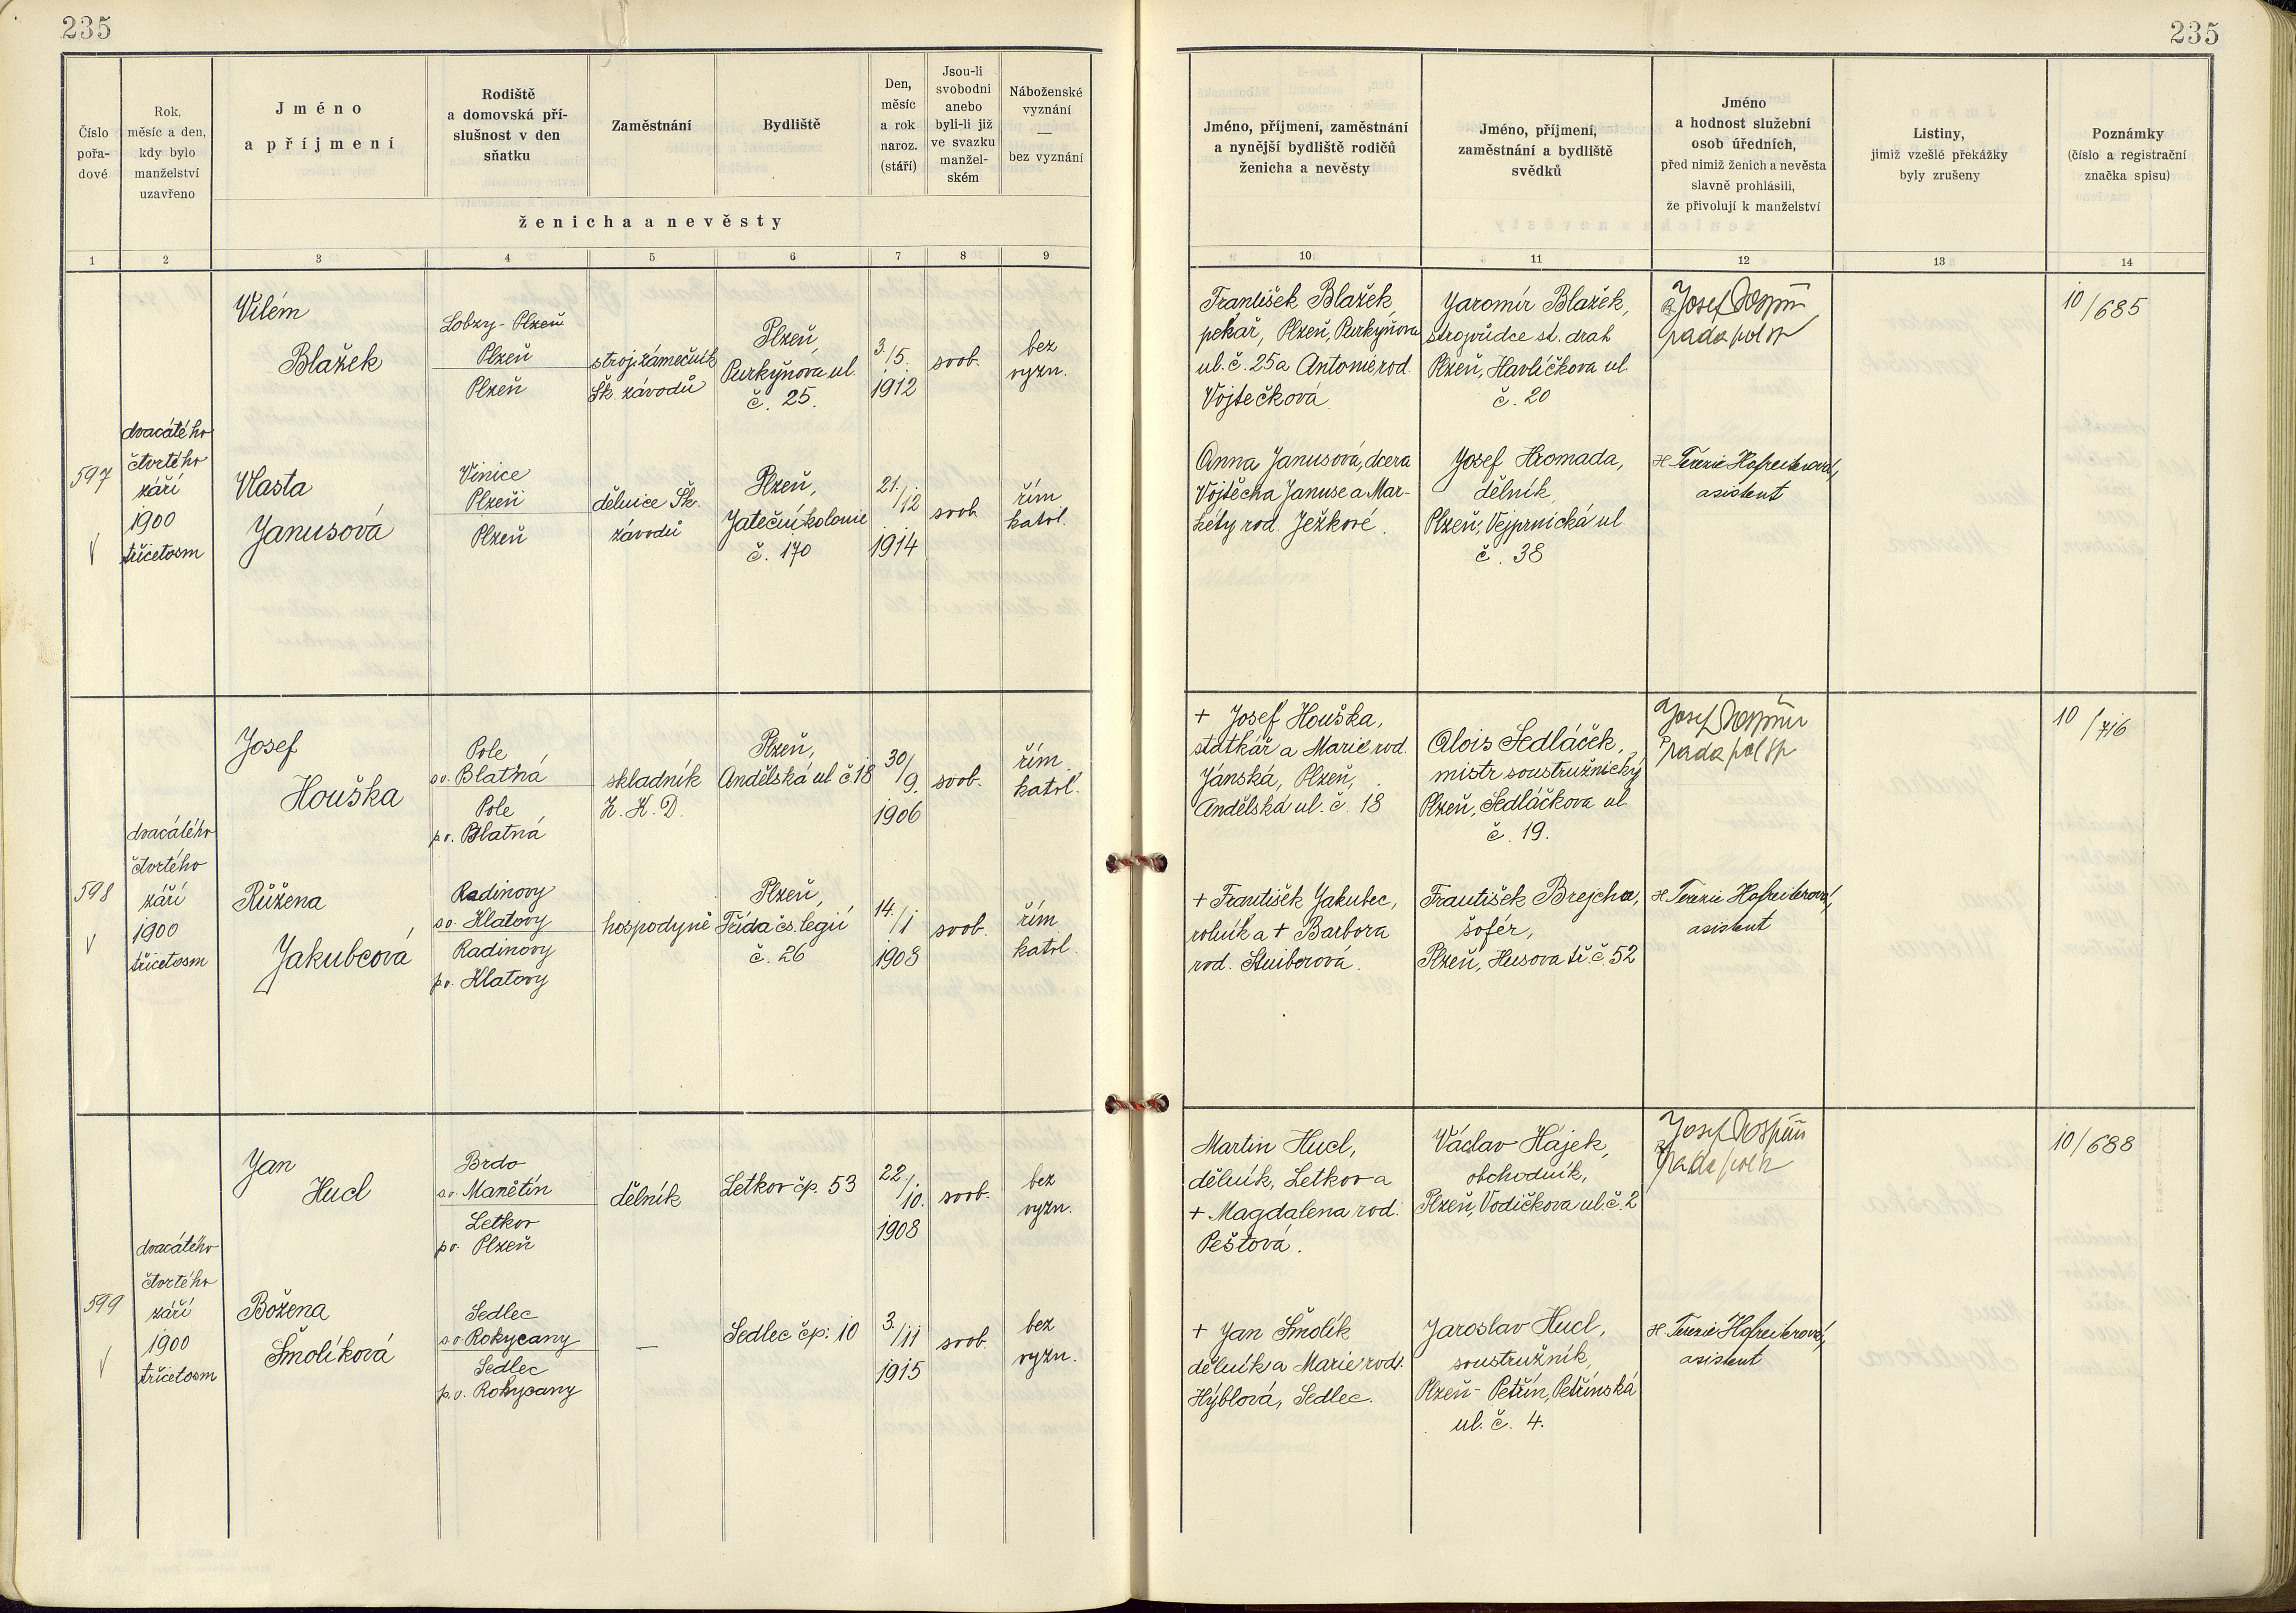 235
235
Číslo pořa- dové
Rok, měsíc a den, kdy bylo manželství uzavřeno
Jméno a příjmení
Rodiště a domovská pří- slušnost v den sňatku
Zaměstnání
Bydliště
Den, měsíc a rok naroz. (stáří)
Jsou-li svobodni anebo byli-li již ve svazku manžel- ském
Náboženské vyznání — bez vyznání
ženicha a nevěsty
Jméno, příjmení, zaměstnání a nynější bydliště rodičů ženicha a nevěsty
Jméno, příjmení, zaměstnání a bydliště svědků
Jméno a hodnost služební osob úředních, před nimiž ženich a nevěsta slavně prohlásili, že přivolují k manželství
Listiny, jimiž vzešlé překážky byly zrušeny
Poznámky (číslo a registrační značka spisu)
1 2 3 4 5 6 7 8 9 10 11 12 13 14
597
dvacátého
čtvrtého
září
1900
třicetosm
Vilém
Blažek
Lobzy - Plzeň
Plzeň
Plzeň
stroj. zámečník
Šk. závodů
Plzeň,
Purkyňova ul.
č. 25.
3./5.
1912
svob.
bez
vyzn.
František Blažek,
pekař, Plzeň, Purkyňova
ul. č. 25 a Antonie rod.
Vojtečková.
Jaromír Blažek,
strojvůdce st. drah
Plzeň, Havlíčkova ul.
č. 20
Josef
rada pol
10/685
Vlasta
Janusová
Vinice
Plzeň
Plzeň
dělnice Šk.
závodů
Plzeň,
Jateční kolonie
č. 170
21./12
1914
svob.
řím.
katol.
Anna Janusová, dcera
Vojtěcha Januse a Mar-
kéty rod. Ježkové.
Josef Hromada,
dělník,
Plzeň, Vejprnická ul.
č. 38
Terezie Hofreiterová,
asistent
598
dvacátého
čtvrtého
září
1900
třicetosm
Josef
Houška
Pole
so. Blatná
Pole
p.o. Blatná
skladník
Z. K. D.
Plzeň,
Andělská ul. č. 18
30/9.
1906
svob.
řím.
katol.
+ Josef Houška,
statkář a Marie rod.
Jánská, Plzeň,
Andělská ul. č. 18
Alois Sedláček,
mistr soustružnický
Plzeň, Sedláčkova ul.
č. 19.
Josef
rada pol
10/716
Růžena
Jakubcová
Radinovy
so. Klatovy
Radinovy
p.o. Klatovy
hospodyně
Plzeň,
Třída čs. legií
č. 26
14./1
1908
svob.
řím.
katol.
+ František Jakubec,
rolník a + Barbora
rod. Stuiberová.
František Brejcha,
šofér,
Plzeň, Husova tř. č. 52
Terezie Hofreiterová,
asistent
599
dvacátého
čtvrtého
září
1900
třicetosm
Jan
Hucl
Brdo
so. Manětín
Letkov
p.o. Plzeň
dělník
Letkov čp. 53
22./10.
1908
svob.
bez
vyzn.
Martin Hucl,
dělník, Letkov a
+ Magdalena rod.
Peštová.
Václav Hájek,
obchodník,
Plzeň, Vodičkova ul. č. 2
Josef
rada pol
10/688
Božena
Šmolíková
Sedlec
so. Rokycany
Sedlec
p.o. Rokycany
—
Sedlec čp. 10
3./11
1915
svob.
bez
vyzn.
+ Jan Šmolík
dělník a Marie rod.
Hýblová, Sedlec.
Jaroslav Hucl,
soustružník,
Plzeň - Petřín, Petřínská
ul. č. 4.
Terezie Hofreiterová,
asistent